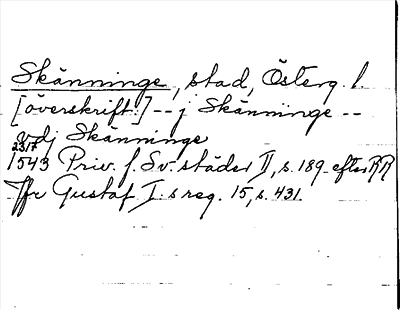 Skänninge, stad, Österg. l.
[överskrift:] -- j Skänninge --
vdj Skänninge
23/7
1543 Priv. f. Sv. städer II, s. 189 efter RR
Jfr Gustaf I:s reg. 15, s. 431.